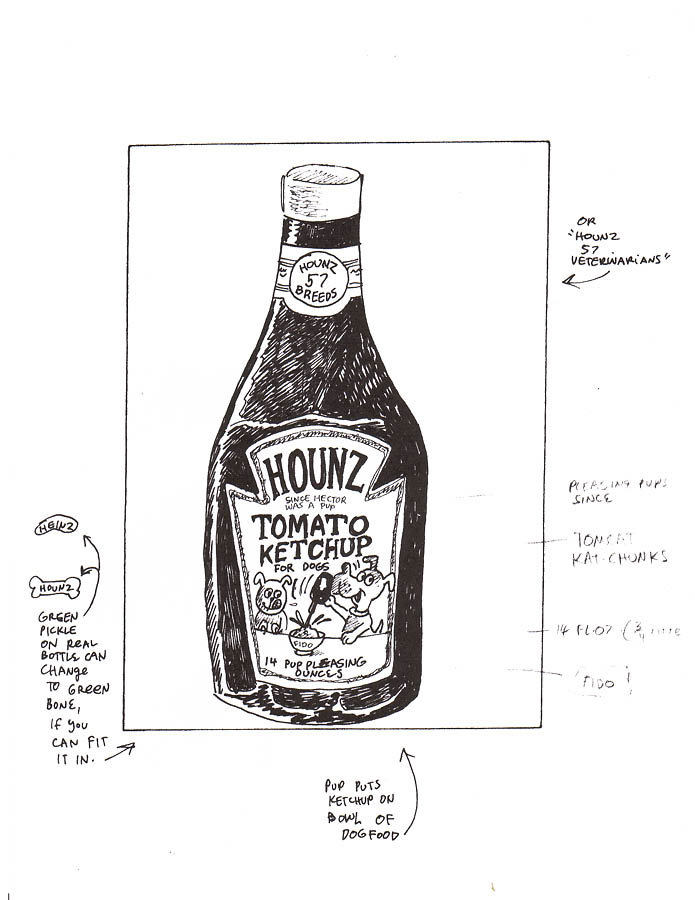 HOUNZ
57
BREEDS
HOUNZ
SINCE HECTOR
WAS A PUP
TOMATO
KETCHUP
FOR DOGS
FIDO
14 PUP PLEASING
OUNCES
OR
"HOUNZ
57
VETERINARIANS"
PLEASING PUPS
SINCE
TOMCAT
KAT-CHUNKS
14 FL OZ (3/4
FIDO
HEINZ
HOUNZ
GREEN
PICKLE
ON REAL
BOTTLE CAN
CHANGE
TO GREEN
BONE,
IF YOU
CAN FIT
IT IN.
PUP PUTS
KETCHUP ON
BOWL OF
DOGFOOD